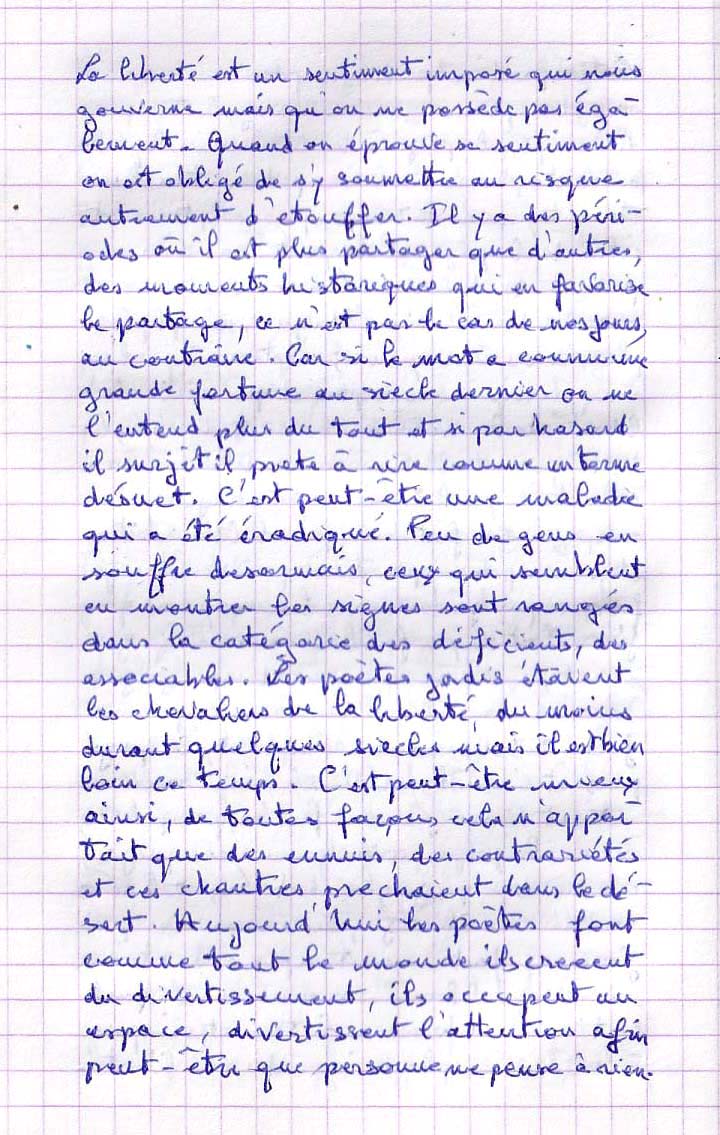 La liberté est un sentiment imposé qui nous
gouverne mais qu'on ne possède pas éga-
lement. Quand on éprouve se sentiment
on est obligé de s'y soumettre au risque
autrement d'étouffer. Il y a des péri-
odes où il est plus partager que d'autres,
des moments historiques qui en favorise
le partage, ce n'est pas le cas de nos jours,
au contraire. Car si le mot a connu une
grande fortune au siècle dernier on ne
l'entend plus du tout et si par hasard
il surgit il prete à rire comme un terme
désuet. C'est peut-être une maladie
qui a été éradiqué. Peu de gens en
souffre desormais, ceux qui semblent
en montrer les signes sont rangés
dans la catégorie des déficients, des
associables. Les poètes jadis étaient
les chevaliers de la liberté, du moins
durant quelques siècles mais il est bien
loin ce temps. C'est peut-être mieux
ainsi, de toutes façons cela n'appor-
tait que des ennuis, des contrariétés
et ces chantres prechaient dans le dé-
sert. Aujourd'hui les poètes font
comme tout le monde ils creent
du divertissement, ils occupent un
espace, divertissent l'attention afin
peut-être que personne ne pense à rien.